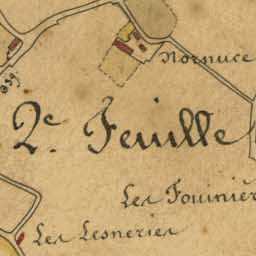 Nornuce
2e Feuille
Les Fouinièr
Les Lesneries